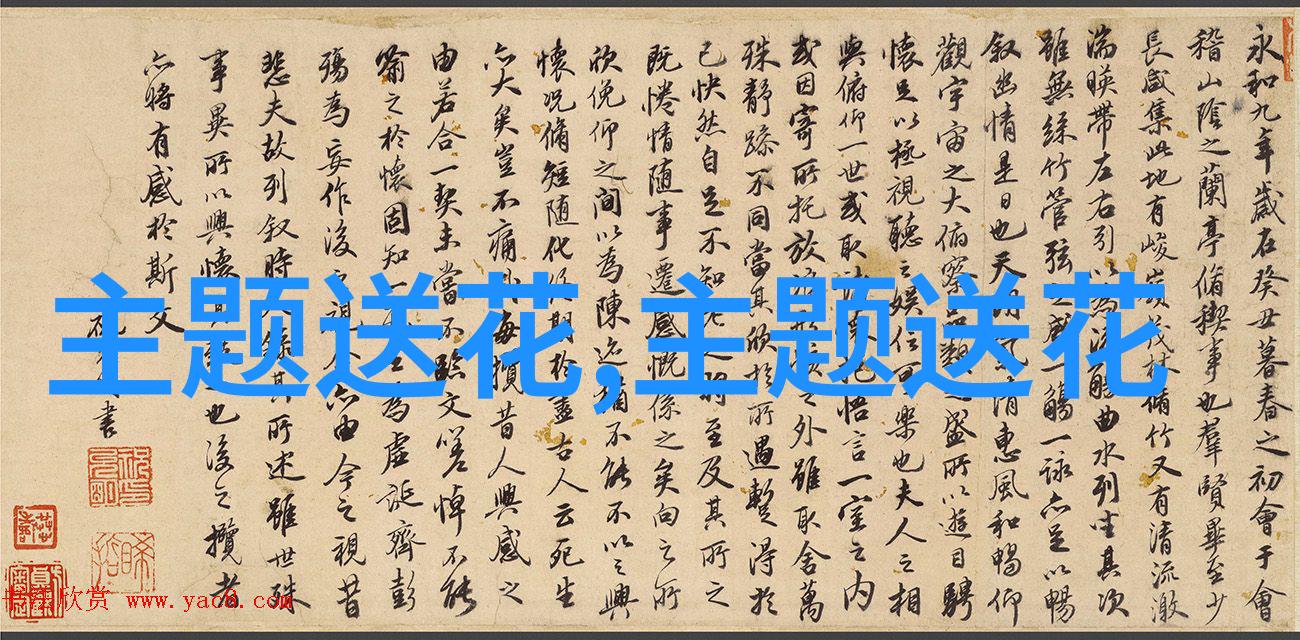 永和九年歲在癸丑暮春之初會于會
稽山陰之蘭亭脩稧事也羣賢畢至少
長咸集此地有峻嶺茂林脩竹又有清流激
湍暎帶左右引以為流觴曲水列坐其次
雖無絲竹管弦之盛一觴一詠亦足以暢
叙幽情是日也天朗氣清惠風和暢仰
觀宇宙之大俯察品類之盛所以遊目騁
懷足以極視聽之娛信可樂也夫人之相
與俯仰一世或取諸懷抱悟言一室之內
或因寄所托放浪形骸之外雖取舍萬
殊静躁不同當其欣於所遇暫得於
己快然自足不知老之將至及其所之
既惓情随事遷感慨係之矣向之所
欣俛仰之間以為陳迹猶不能不以之興
懷況脩短随化終期於盡古人云死生
亦大矣豈不痛哉每攬昔人興感之
由若合一契未嘗不臨文嗟悼不能
喻之於懷固知一死生為虛誕齊彭
殤為妄作後之視今亦由今之視昔
悲夫故列叙時人錄其所述雖世殊
事異所以興懷其致一也後之攬者
亦將有感於斯文
書
主题送花,主题送花
书法欣赏 www.yac8.com